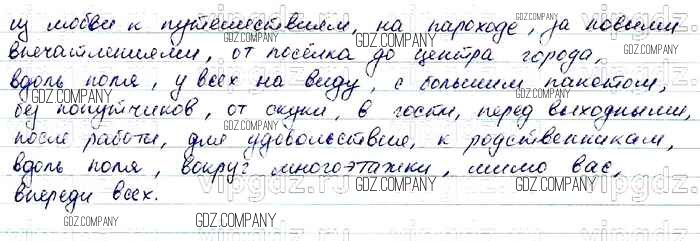 из любви к путешествиям, на пароходе, за новыми
впечатлениями, от посёлка до центра города,
вдоль поля, у всех на виду, с большим пакетом,
без попутчиков, от скуки, в гости, перед выходными,
после работы, для удовольствия, к родственникам,
вдоль поля, вокруг многоэтажки, мимо вас,
впереди всех.
GDZ.COMPANY
GDZ.COMPANY
GDZ.COMPANY
GDZ.COMPANY
GDZ.COMPANY
GDZ.COMPANY
GDZ.COMPANY
GDZ.COMPANY
GDZ.COMPANY
vipgdz.ru
vipgdz.ru